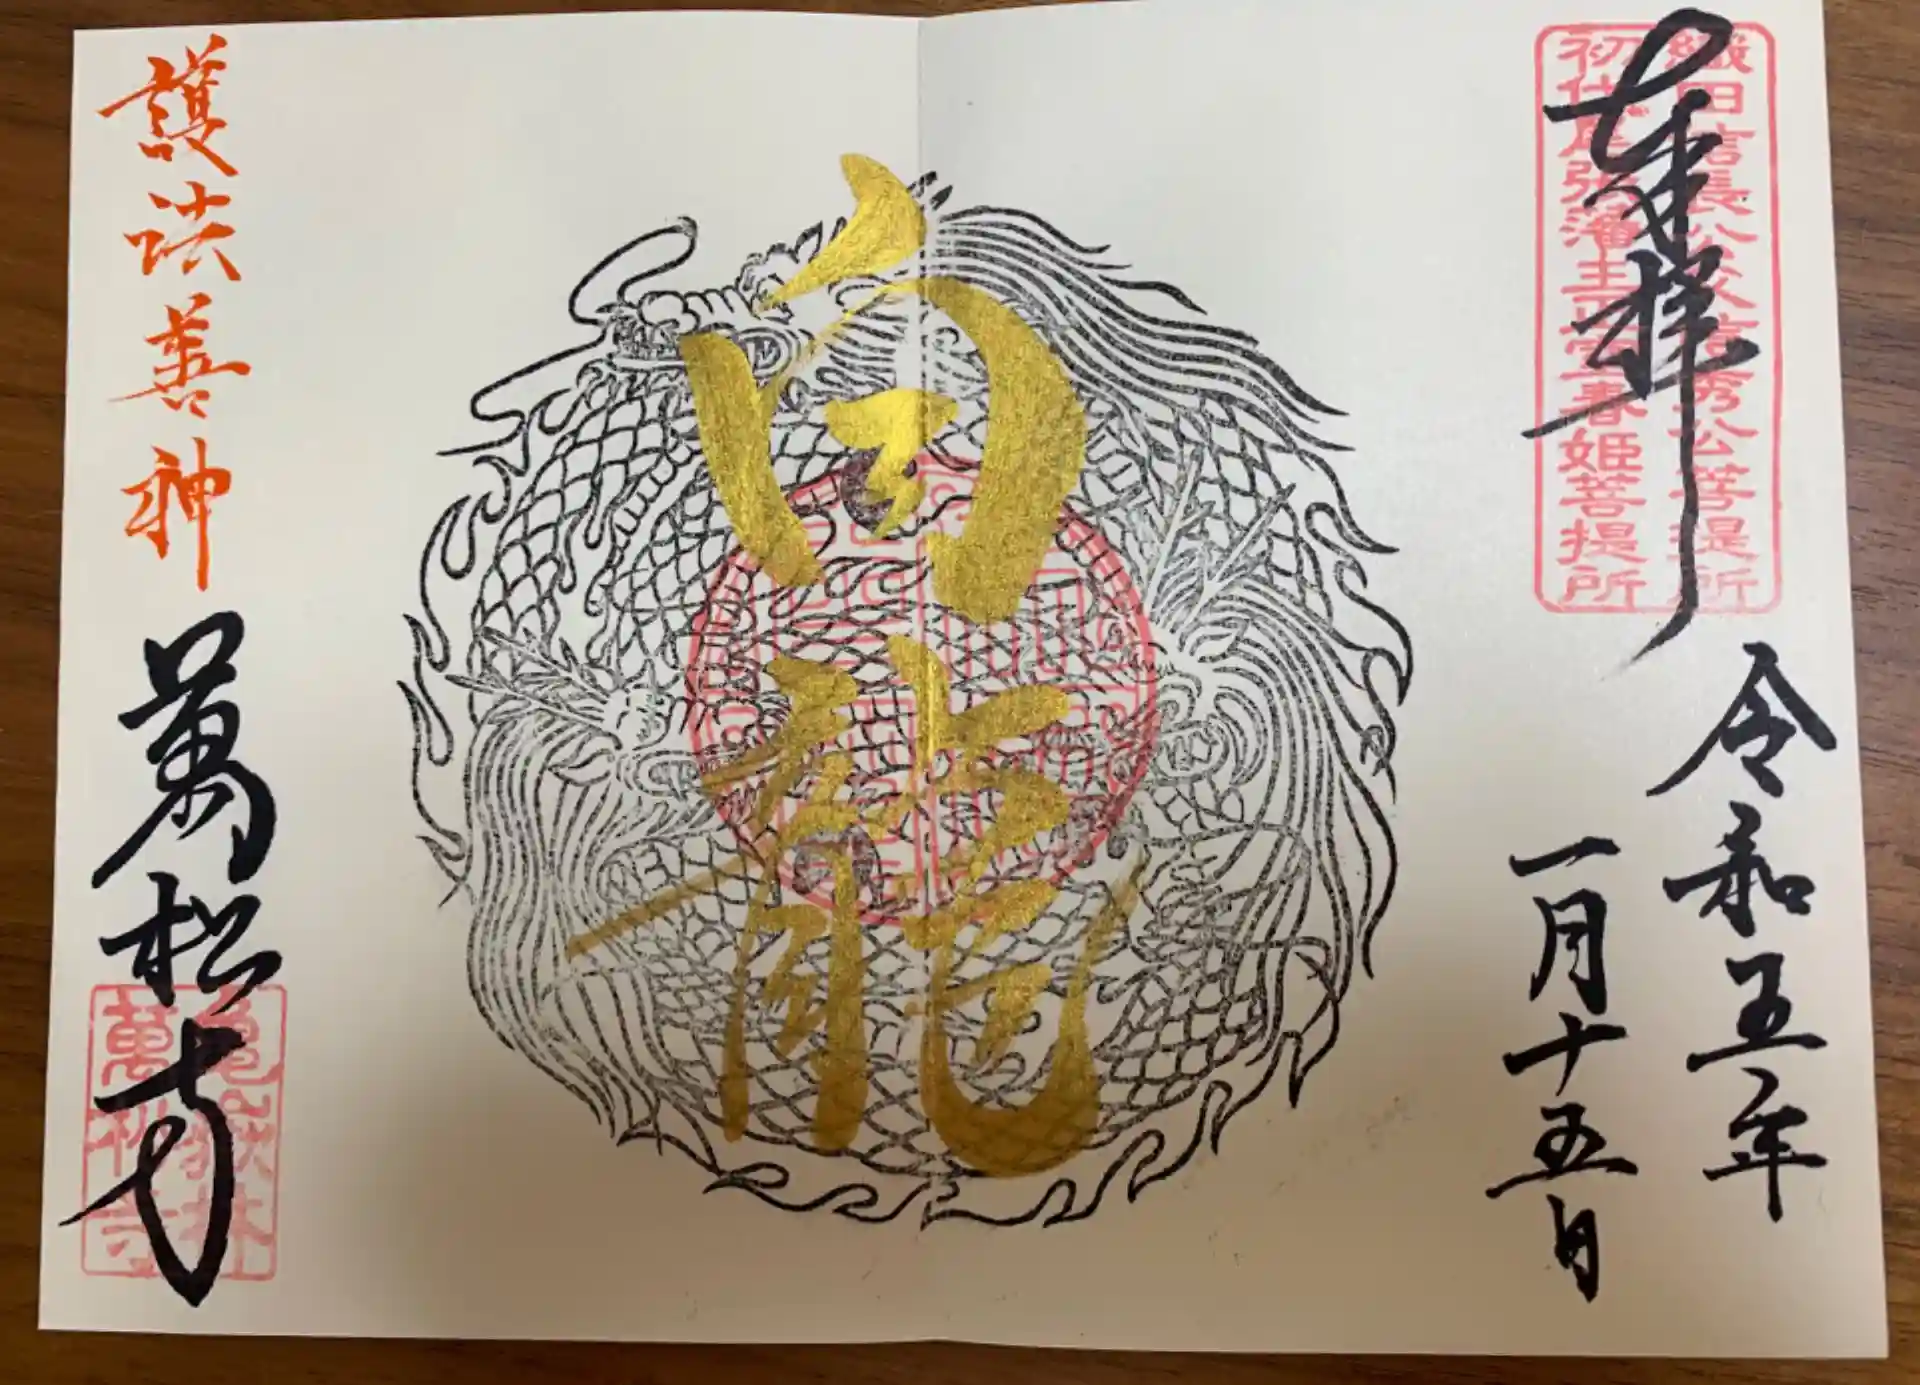 奉拝
織田信長公父信秀公菩提所
初代尾張藩主正室春姫菩提所
令和五年
一月十五日
白龍
護法善神
萬松寺
亀嶽林
萬松寺